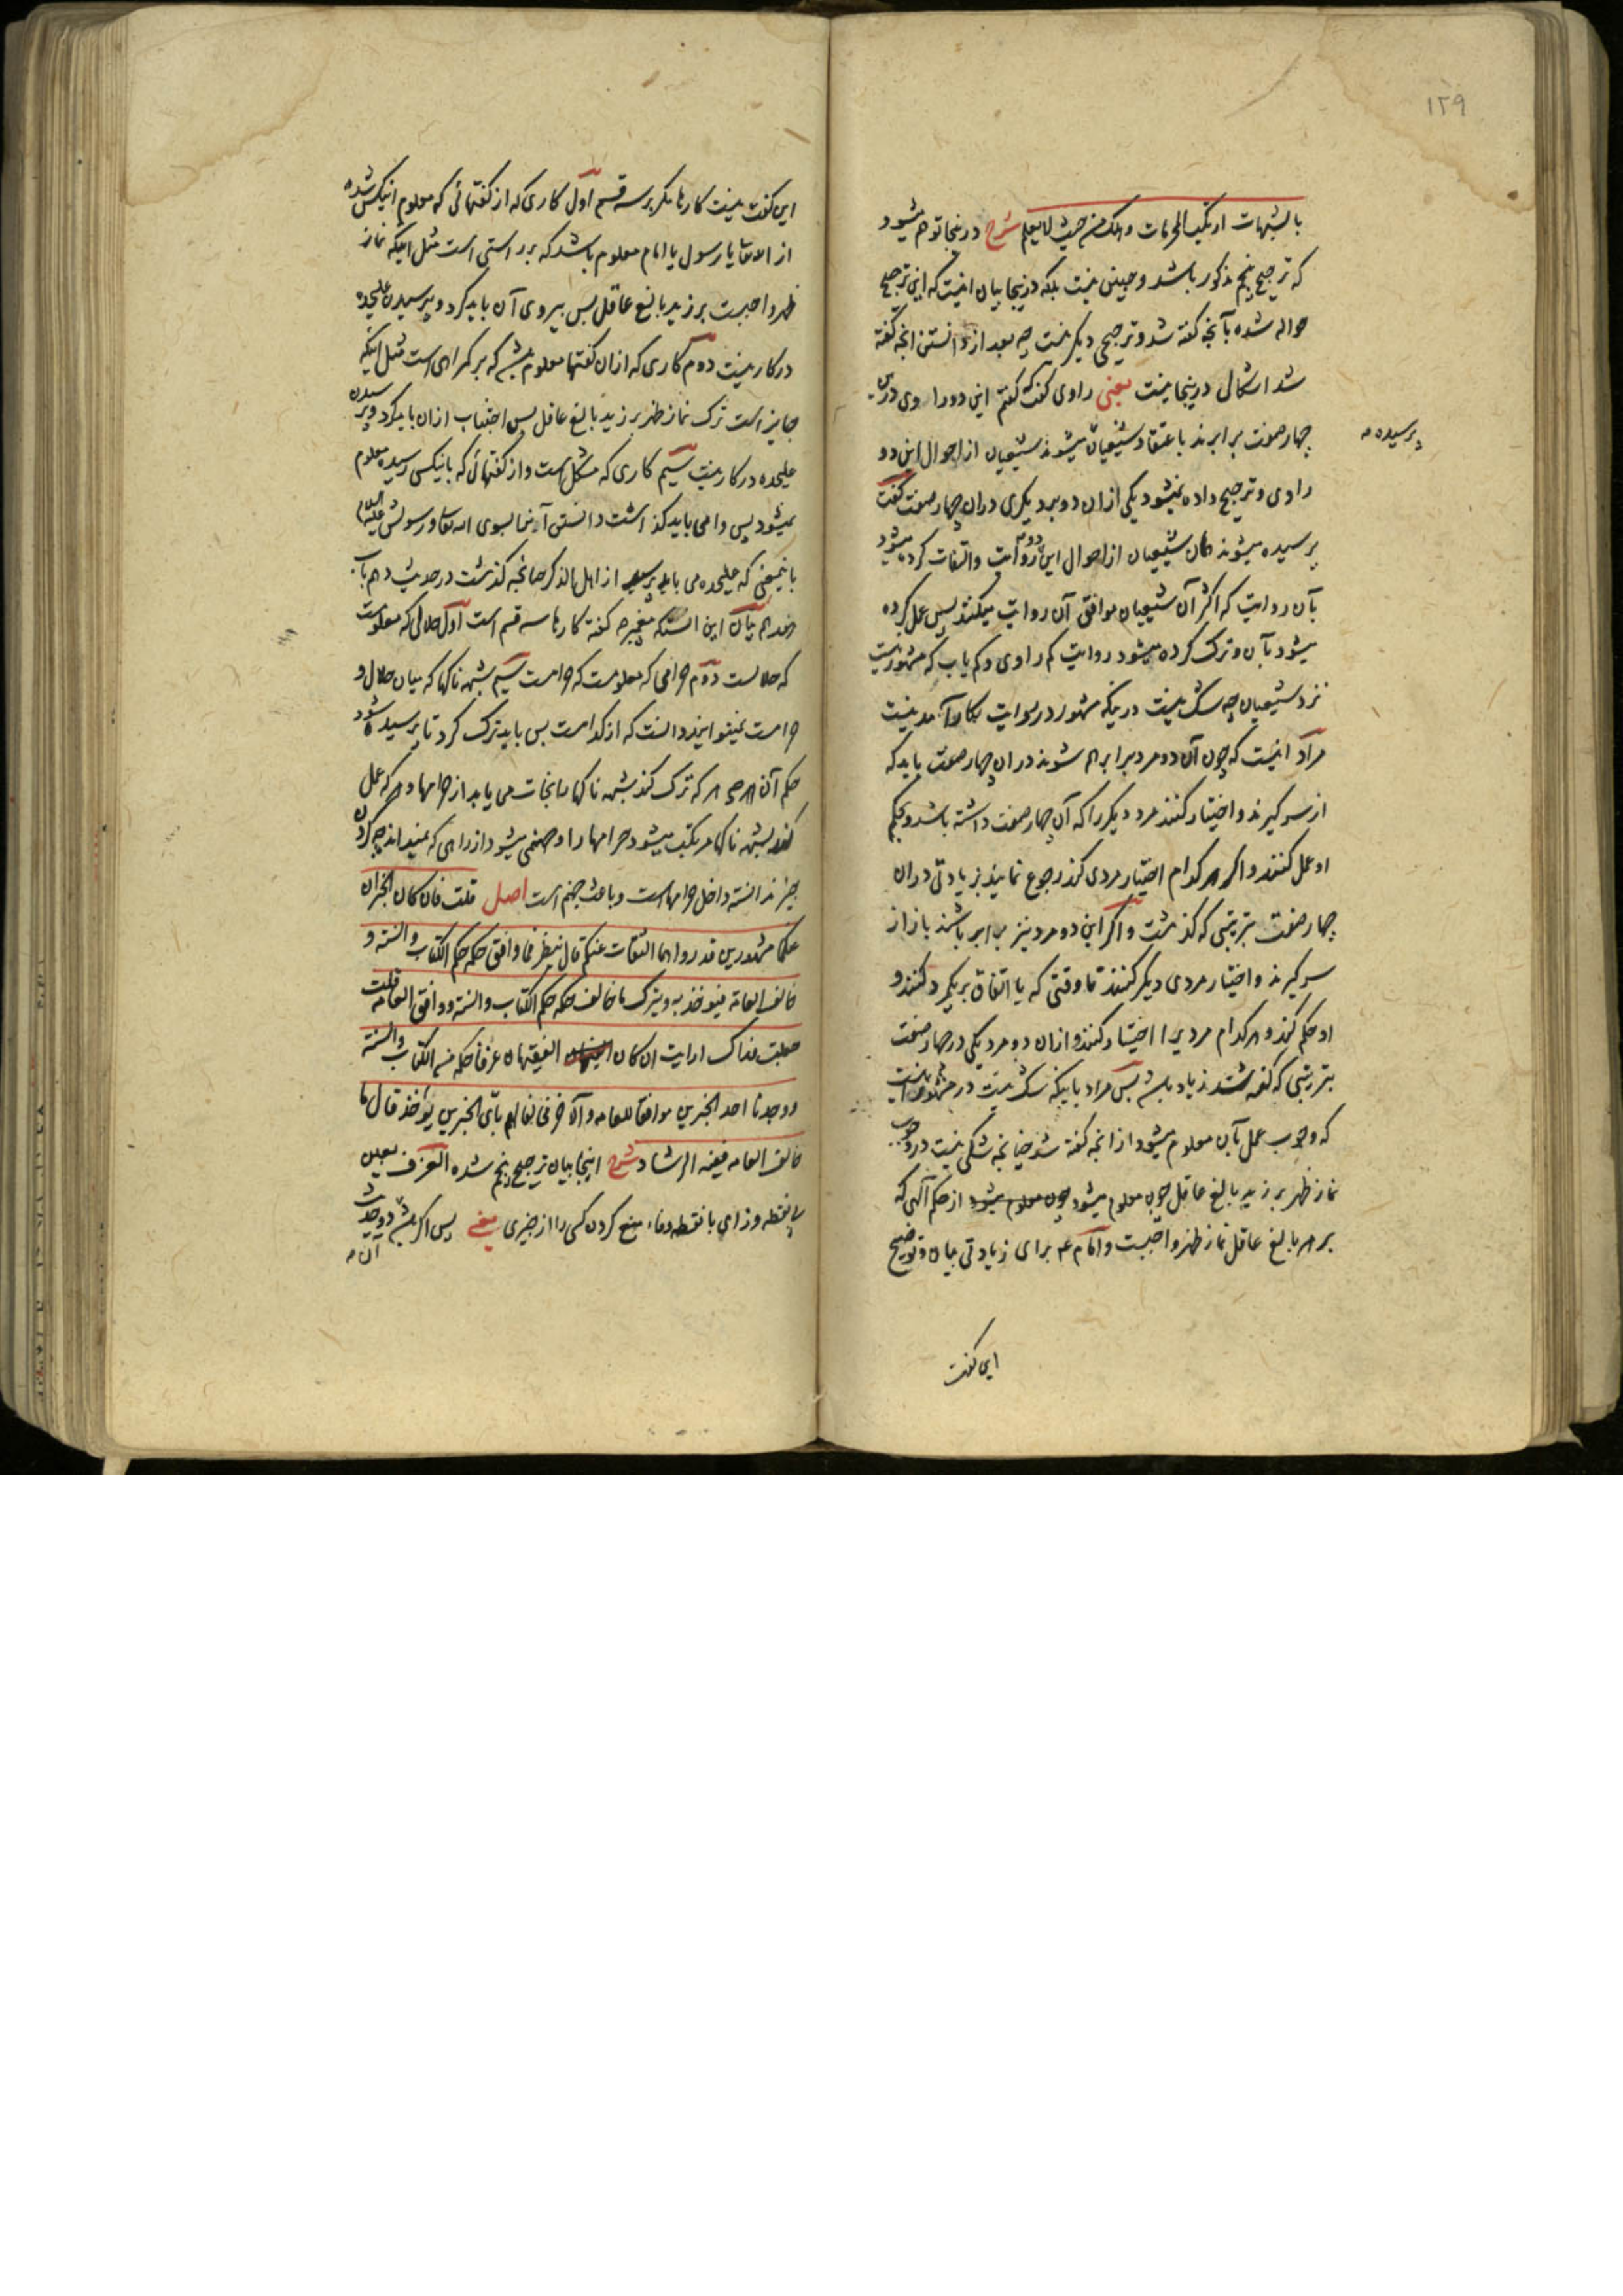 ۱۲۹
بالشبهات ارتکب المحرمات وهلک من حیث لا یعلم شرح درینجا توهم میشود
که ترجیح پنجم مذکور باشد و چنین نیست بلکه درینجا بیان اینست که این ترجیح
حواله شده بآنچه گفته شد و ترجیحی دیگر نیست چه بعد از دانستن آنچه گفته
شد اشکال درینجا نیست یعنی راوی گفت که گفتم این دو راوی درین
چهار صفت برابرند باعتقاد شیعیان میشوند شیعیان از احوال این دو
پرسیده
راوی و ترجیح داده نمیشود یکی ازان دو بر دیگری دران چهار صفت گفت
پرسیده میشوند همان شیعیان از احوال این دو روایت و التفات کرده میشود
بآن روایت که اکثر آن شیعیان موافق آن روایت میکنند پس عمل کرده
میشود بآن و ترک کرده میشود روایت کم راوی و کم یاب که مشهور نیست
نزد شیعیان چه شک نیست در اینکه مشهور در روایت بکار آمدنیست
مراد اینست که چون آن دو مرد برابر هم شوند دران چهار صفت باید که
از سر گیرند و اختیار کنند مرد دیگر را که آن چهار صفت داشته باشد و بحکم
او عمل کنند و اگر هر کدام اختیار مردی کند رجوع نمایند بزیادتی دران
چهار صفت بترتیبی که گذشت و اگر این دو مرد نیز برابر باشند باز از
سر گیرند و اختیار مردی دیگر کنند تا وقتی که یا اتفاق بر یکمرد کنند و
او حکم کند و هر کدام مردیرا اختیار کنند و ازان دو مرد یکی در چهار صفت
بترتیبی که گفته شد زیاد باشد پس مراد باینکه شک نیست در مشهور اینست
که وجوب عمل بآن معلوم میشود از آنچه گفته شد چنانچه شکی نیست در وجوب
نماز ظهر بر زید بالغ عاقل چون معلوم میشود چون معلوم میشود از حکم الهی که
بر هر بالغ عاقل نماز ظهر واجبست و امام ع برای زیادتی بیان و توضیح
این گفت
این گفت نیست کارها مگر بر سه قسم اول کاری که از گفتهائی که معلوم اینکس شده
از الله تعالی یا رسول یا امام معلوم باشد که بر راستی است مثل اینکه نماز
ظهر واجبست بر زید بالغ عاقل پس پیروی آن باید کرد و پرسیدن علیحده
در کار نیست دوم کاری که ازان گفتها معلوم باشد که بر گمراهی است مثل اینکه
جایز است ترک نماز ظهر بر زید بالغ عاقل پس اجتناب ازان باید کرد و پرسیدن
علیحده در کار نیست سیم کاری که مشکل است و از گفتهائی که باینکس رسیده معلوم
نمیشود پس وا می باید گذاشت دانستن آن را بسوی الله تعالی و رسولش علیه السلام
باینمعنی که علیحده می باید پرسید از اهل الذکر چنانچه گذشت در حدیث دهم باب
بیان این آنستکه پیغمبر ص گفته کارها سه قسم است اول حلالی که معلومست
که حلالست دوم حرامی که معلومست که حرامست سیم شبهه ناکها که میان حلال و
حرامست نمیتوانید دانست که از کدامست پس باید ترک کرد تا پرسیده شود
حکم آن هر که ترک کند شبهه ناکها را نجات می یابد از حرامها و هر که عمل
کند بشبهه ناکها مرتکب میشود حرامها را و جهنمی میشود از راهی که نمیداند چه کردن
چیز ندانسته داخل حرامهاست و باعث جهنم است اصل قلت فان کان الخبران
عنکما مشهورین قد رواهما الثقات عنکم قال ینظر فما وافق حکمه حکم الکتاب والسنة و
خالف العامة فیؤخذ به ویترک ما خالف حکمه حکم الکتاب والسنة ووافق العامة قلت
جعلت فداک ارایت ان کان الفقیهان عرفا حکمه من الکتاب والسنة
ووجدنا احد الخبرین موافقا للعامه والآخر مخالفا لهم بأی الخبرین یؤخذ قال ما
خالف العامه ففیه الرشاد شرح اینجا بیان ترجیح پنجم شده العزف بعین
بی نقطه و زای با نقطه و فاء منع کردن کسی را از چیزی یعنی پس اگر باشد دو حدیث
آن